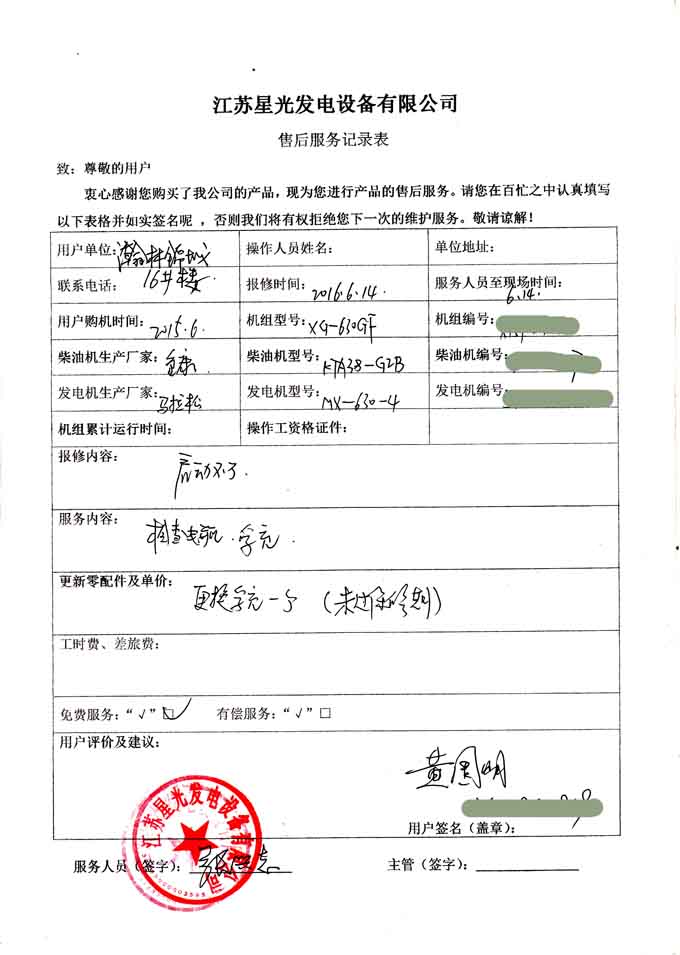 江苏星光发电设备有限公司
售后服务记录表
致：尊敬的用户
衷心感谢您购买了我公司的产品，现为您进行产品的售后服务。请您在百忙之中认真填写
以下表格并如实签名呢 ，否则我们将有权拒绝您下一次的维护服务。敬请谅解！
用户单位：瀚林锦城 操作人员姓名： 单位地址：
联系电话： 16#楼 报修时间：2016.6.14. 服务人员至现场时间：
6.14.
用户购机时间：2015.6. 机组型号：XG-630GF 机组编号：
柴油机生产厂家：重康 柴油机型号：KTA38-G2B 柴油机编号：
发电机生产厂家：马拉松 发电机型号：MX-630-4 发电机编号：
机组累计运行时间： 操作工资格证件：
报修内容：
启动不了.
服务内容：
检查电瓶.浮充.
更新零配件及单价：
更换浮充一个（未过保修期）
工时费、差旅费：
免费服务：“√”☑ 有偿服务：“√”□
用户评价及建议：
黄国明
用户签名（盖章）：
江苏星光发电设备有限公司
服务人员（签字）： 主管（签字）：